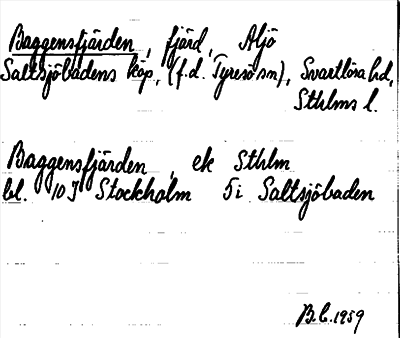 Baggensfjärden, fjärd, Aljö
Saltsjöbadens köp, (f.d. Tyresö sn), Svartlösa hd,
Sthlms l.
Baggensfjärden, ek Sthlm
bl. 10 J Stockholm 5i Saltsjöbaden
B.C. 1959